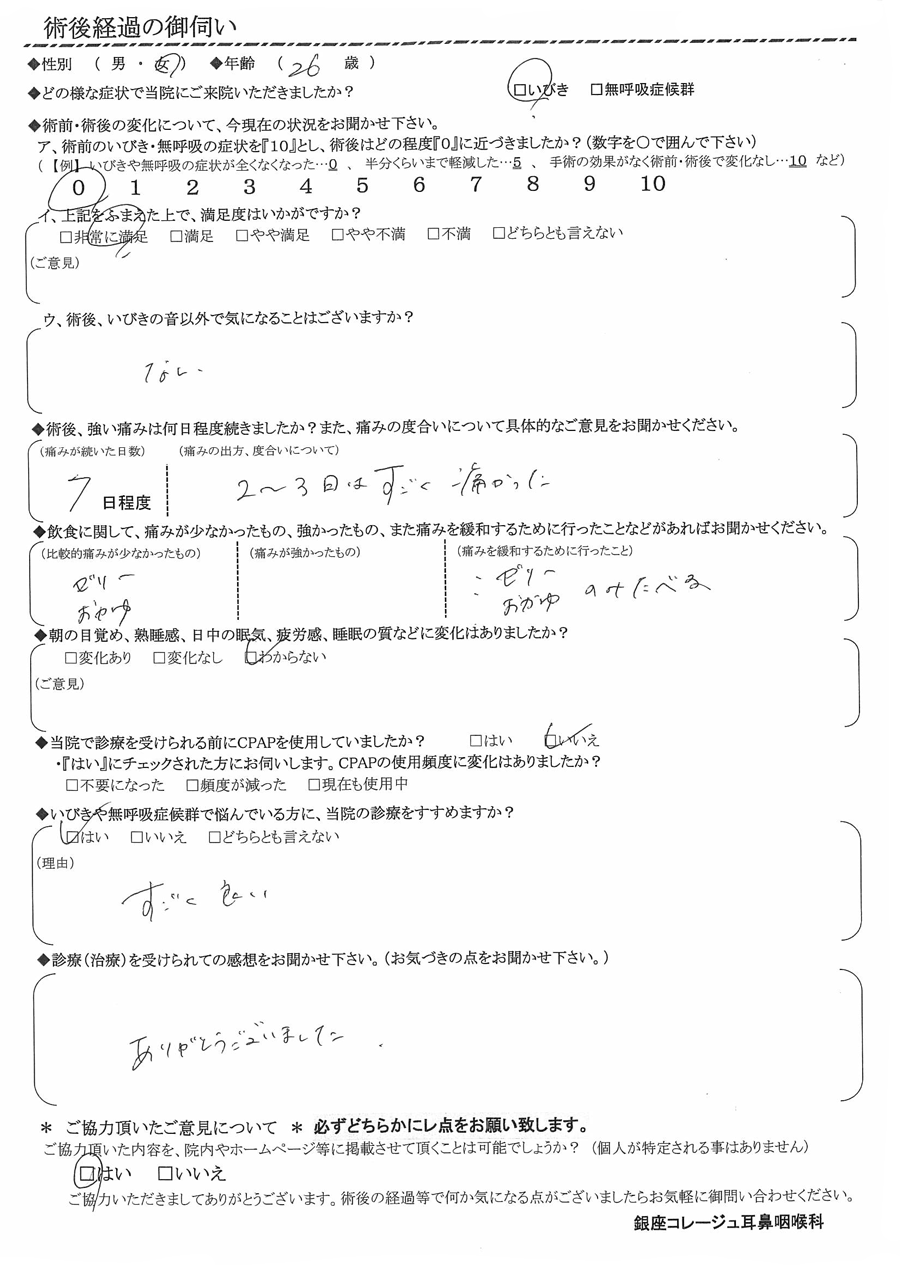 術後経過の御伺い
◆性別 ( 男 ・ 女 ) ◆年齢 ( 26 歳 )
◆どの様な症状で当院にご来院いただきましたか? □いびき □無呼吸症候群
◆術前・術後の変化について、今現在の状況をお聞かせ下さい。
ア、術前のいびき・無呼吸の症状を『10』とし、術後はどの程度『0』に近づきましたか?(数字を○で囲んで下さい)
(【例】いびきや無呼吸の症状が全くなくなった…0 、 半分くらいまで軽減した…5 、 手術の効果がなく術前・術後で変化なし…10 など)
0 1 2 3 4 5 6 7 8 9 10
イ、上記をふまえた上で、満足度はいかがですか?
□非常に満足 □満足 □やや満足 □やや不満 □不満 □どちらとも言えない
(ご意見)
ウ、術後、いびきの音以外で気になることはございますか?
ない
◆術後、強い痛みは何日程度続きましたか?また、痛みの度合いについて具体的なご意見をお聞かせください。
(痛みが続いた日数) (痛みの出方、度合いについて)
7 日程度 2〜3日はすごく痛かった
◆飲食に関して、痛みが少なかったもの、強かったもの、また痛みを緩和するために行ったことなどがあればお聞かせください。
(比較的痛みが少なかったもの) (痛みが強かったもの) (痛みを緩和するために行ったこと)
ゼリー ゼリー
おかゆ おかゆ のみたべる
◆朝の目覚め、熟睡感、日中の眠気、疲労感、睡眠の質などに変化はありましたか?
□変化あり □変化なし □わからない
(ご意見)
◆当院で診療を受けられる前にCPAPを使用していましたか? □はい □いいえ
・『はい』にチェックされた方にお伺いします。CPAPの使用頻度に変化はありましたか?
□不要になった □頻度が減った □現在も使用中
◆いびきや無呼吸症候群で悩んでいる方に、当院の診療をすすめますか?
□はい □いいえ □どちらとも言えない
(理由)
すごく良い
◆診療(治療)を受けられての感想をお聞かせ下さい。(お気づきの点をお聞かせ下さい。)
ありがとうございました
＊ ご協力頂いたご意見について ＊ 必ずどちらかにレ点をお願い致します。
ご協力頂いた内容を、院内やホームページ等に掲載させて頂くことは可能でしょうか? (個人が特定される事はありません)
□はい □いいえ
ご協力いただきましてありがとうございます。術後の経過等で何か気になる点がございましたらお気軽に御問い合わせください。
銀座コレージュ耳鼻咽喉科